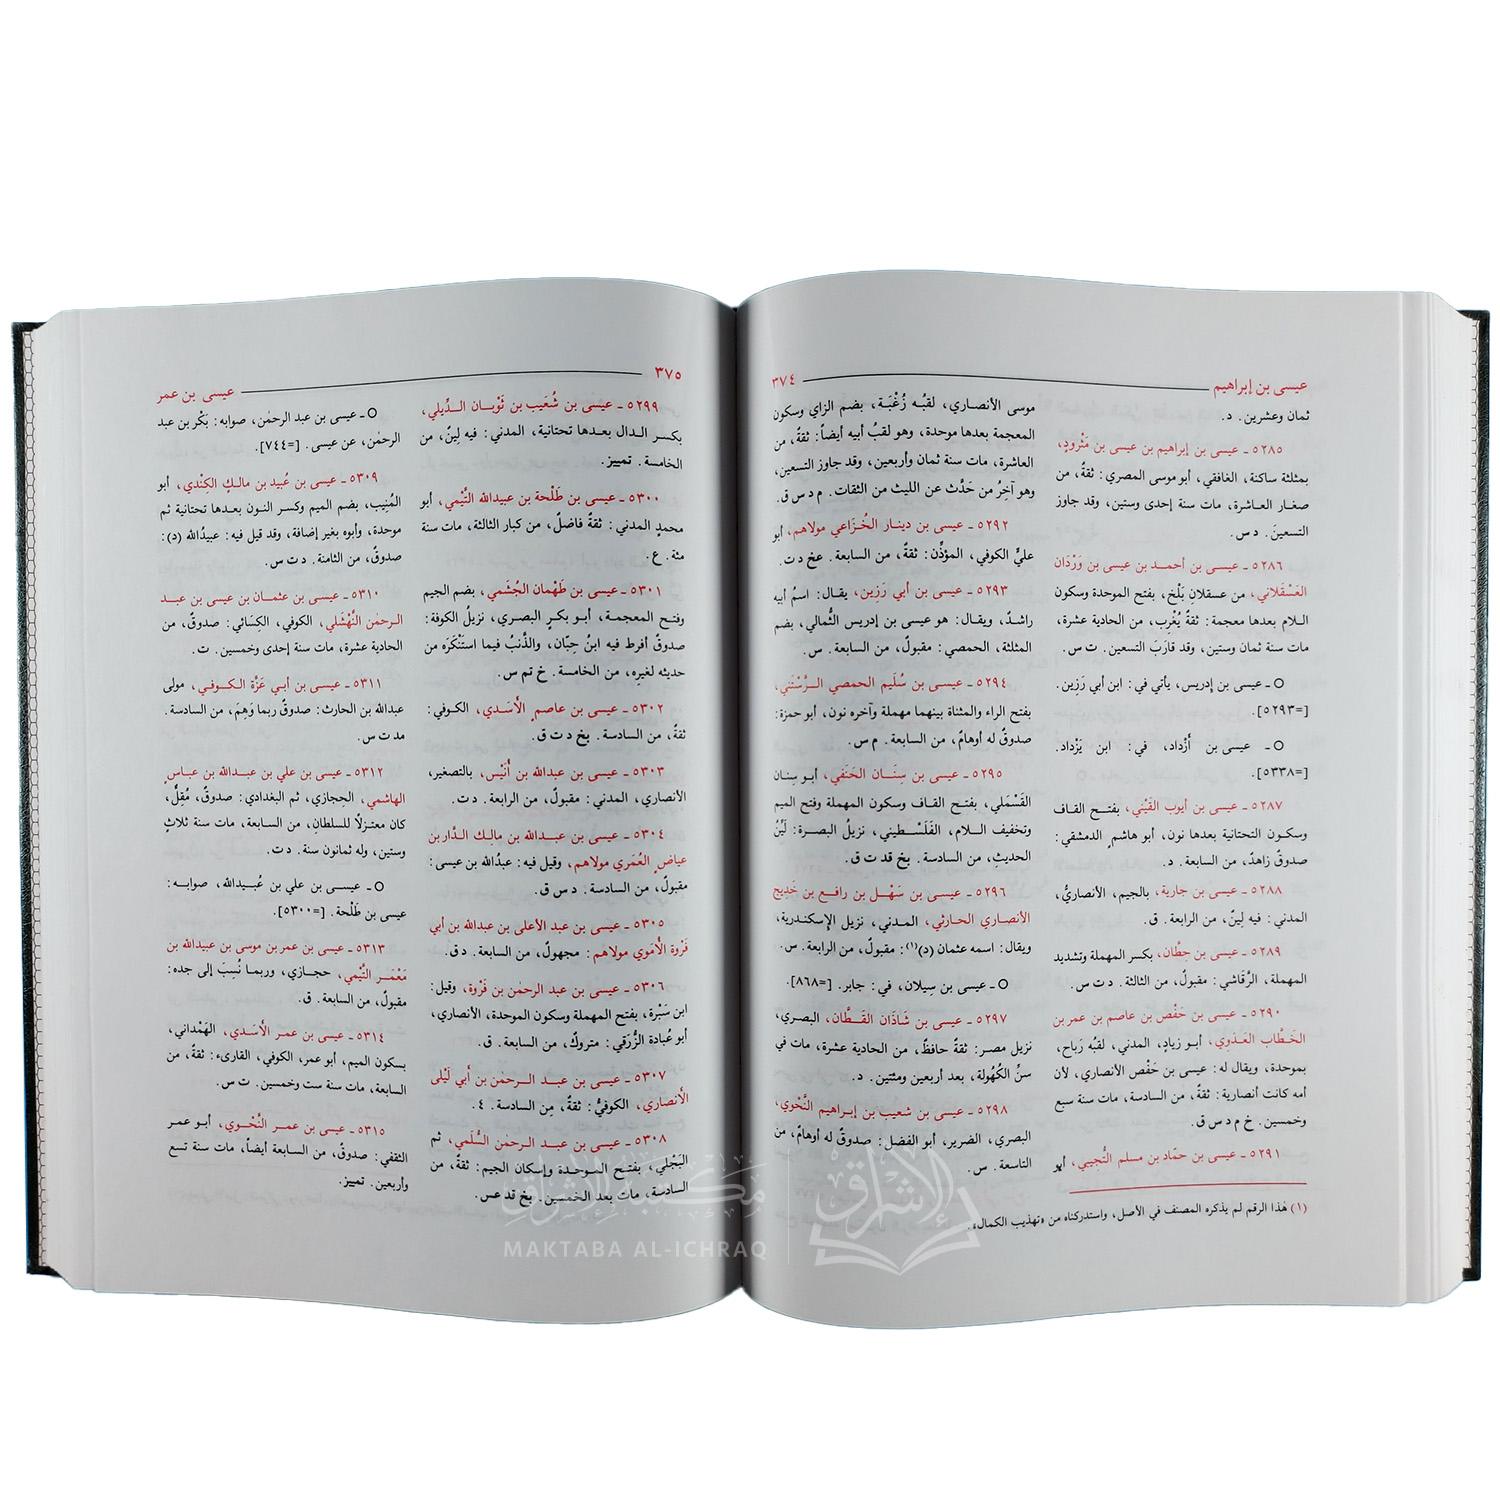 عيسى بن إبراهيم
٣٧٤
ثمان وعشرين. د.
٥٢٨٥ ـ عيسى بن إبراهيم بن عيسى بن مَثْرودٍ،
بمثلثة ساكنة، الغافقي، أبو موسى المصري: ثقةٌ، من
صغار العاشرة، مات سنة إحدى وستين، وقد جاوز
التسعينَ. د س.
٥٢٨٦ ـ عيسى بن أحمد بن عيسى بن وَرْدَان
العَسْقَلاني، من عسقلانِ بَلْخ، بفتح الموحدة وسكون
اللام بعدها معجمة: ثقةٌ يُغْرِب، من الحادية عشرة،
مات سنة ثمان وستين، وقد قارَبَ التسعين. ت س.
○ ـ عيسى بن إدريس، يأتي في: ابن أبي رَزِين.
[=٥٢٩٣].
○ ـ عيسى بن أَزْداد، في: ابن يَزْداد.
[=٥٣٣٨].
٥٢٨٧ ـ عيسى بن أيوب القَيْني، بفتح القاف
وسكون التحتانية بعدها نون، أبو هاشمٍ الدمشقي:
صدوقٌ زاهدٌ، من السابعة. د.
٥٢٨٨ ـ عيسى بن جارية، بالجيم، الأنصاريُّ،
المدني: فيه لِينٌ، من الرابعة. ق.
٥٢٨٩ ـ عيسى بن حِطَّان، بكسر المهملة وتشديد
المهملة، الرَّقَاشي: مقبولٌ، من الثالثة. د ت س.
٥٢٩٠ ـ عيسى بن حَفْص بن عاصم بن عمر بن
الخَطَّاب العَدَوِي، أبو زيادٍ، المدني، لقبُه رَباح،
بموحدة، ويقال له: عيسى بن حَفْص الأنصاري، لأن
أمه كانت أنصارية: ثقةٌ، من السادسة، مات سنة سبع
وخمسين. خ م د س ق.
٥٢٩١ ـ عيسى بن حمّاد بن مسلم التُّجيبي، أبو
موسى الأنصاري، لقبُه زُغْبَة، بضم الزاي وسكون
المعجمة بعدها موحدة، وهو لقبُ أبيه أيضاً: ثقةٌ، من
العاشرة، مات سنة ثمان وأربعين، وقد جاوز التسعين،
وهو آخِرُ من حَدَّث عن الليث من الثقات. م د س ق.
٥٢٩٢ ـ عيسى بن دينار الخُزَاعي مولاهم، أبو
عليٍّ الكوفي، المؤذِّن: ثقةٌ، من السابعة. عخ د ت.
٥٢٩٣ ـ عيسى بن أبي رَزِين، يقال: اسمُ أبيه
راشدٌ، ويقال: هو عيسى بن إدريس الثُّمالي، بضم
المثلثة، الحمصي: مقبولٌ، من السابعة. س.
٥٢٩٤ ـ عيسى بن سُلَيم الحمصي الرَّسْتَني،
بفتح الراء والمثناة بينهما مهملة وآخره نون، أبو حمزة:
صدوقٌ له أوهامٌ، من السابعة. م س.
٥٢٩٥ ـ عيسى بن سِنَان الحَنَفي، أبو سِنان
القَسْمَلي، بفتح القاف وسكون المهملة وفتح الميم
وتخفيف اللام، الفَلَسْطيني، نزيلُ البصرة: لَيِّنُ
الحديثِ، من السادسة. بخ قد ت ق.
٥٢٩٦ ـ عيسى بن سَهْل بن رافع بن خَدِيج
الأنصاري الحارثي، المدني، نزيل الإسكندرية،
ويقال: اسمه عثمان (د)(١): مقبولٌ، من الرابعة. س.
○ ـ عيسى بن سِيلان، في: جابر. [=٨٦٨].
٥٢٩٧ ـ عيسى بن شَاذَان القَطَّان، البصري،
نزيل مصر: ثقةٌ حافظٌ، من الحادية عشرة، مات في
سنِّ الكُهُولة، بعد أربعين ومئتين. د.
٥٢٩٨ ـ عيسى بن شعيب بن إبراهيم النَّحْوي،
البصري، الضرير، أبو الفضل: صدوقٌ له أوهامٌ، من
التاسعة. س.
(١) هٰذا الرقم لم يذكره المصنف في الأصل، واستدركناه من «تهذيب الكمال».
٣٧٥
عيسى بن عمر
٥٢٩٩ ـ عيسى بن شُعَيب بن ثَوْبان الدِّيلي،
بكسر الدال بعدها تحتانية، المدني: فيه لِينٌ، من
الخامسة. تمييز.
٥٣٠٠ ـ عيسى بن طَلْحة بن عبيدالله التَّيْمي، أبو
محمدٍ المدني: ثقةٌ فاضلٌ، من كبار الثالثة، مات سنة
مئة. ع.
٥٣٠١ ـ عيسى بن طَهْمان الجُشَمي، بضم الجيم
وفتح المعجمة، أبو بكرٍ البصري، نزيلُ الكوفة:
صدوقٌ أفرط فيه ابنُ حِبّان، والذَّنبُ فيما استَنْكَره من
حديثه لغيرِه، من الخامسة. خ تم س.
٥٣٠٢ ـ عيسى بن عاصمٍ الأَسَدي، الكوفي:
ثقةٌ، من السادسة. بخ د ت ق.
٥٣٠٣ ـ عيسى بن عبدالله بن أُنَيْس، بالتصغير،
الأنصاري، المدني: مقبولٌ، من الرابعة. د ت.
٥٣٠٤ ـ عيسى بن عبدالله بن مالِك الدَّار بن
عياضٍ العُمَري مولاهم، وقيل فيه: عبدُالله بن عيسى:
مقبولٌ، من السادسة. د س ق.
٥٣٠٥ ـ عيسى بن عبد الأعلى بن عبدالله بن أبي
فَرْوة الأُمَوي مولاهم: مجهولٌ، من السابعة. د ق.
٥٣٠٦ ـ عيسى بن عبد الرحمٰن بن فَرْوة، وقيل:
ابن سَبْرة، بفتح المهملة وسكون الموحدة، الأنصاري،
أبو عُبادة الزُّرَقي: متروكٌ، من السابعة. ق.
٥٣٠٧ ـ عيسى بن عبد الرحمٰن بن أبي لَيْلى
الأنصاري، الكوفيُّ: ثقةٌ، مِن السادسة. ٤.
٥٣٠٨ ـ عيسى بن عبد الرحمٰن السُّلَمي، ثم
البَجْلي، بفتح الموحدة وإسكان الجيم: ثقةٌ، من
السادسة، مات بعد الخمسين. بخ قد عس.
○ ـ عيسى بن عبد الرحمٰن، صوابه: بَكْر بن عبد
الرحمٰن، عن عيسى. [=٧٤٤].
٥٣٠٩ ـ عيسى بن عُبيد بن مالكٍ الكِنْدي، أبو
المُنِيب، بضم الميم وكسر النون بعدها تحتانية ثم
موحدة، وأبوه بغير إضافة، وقد قيل فيه: عبيدُالله (د):
صدوقٌ، من الثامنة. د ت س.
٥٣١٠ ـ عيسى بن عثمان بن عيسى بن عبد
الرحمٰن النَّهْشَلي، الكوفي، الكِسَائي: صدوقٌ، من
الحادية عشرة، مات سنة إحدى وخمسين. ت.
٥٣١١ ـ عيسى بن أبي عَزَّة الكوفي، مولى
عبدالله بن الحارث: صدوقٌ ربما وَهِمَ، من السادسة.
مد ت س.
٥٣١٢ ـ عيسى بن علي بن عبدالله بن عباسٍ
الهاشمي، الحجازي، ثم البغدادي: صدوقٌ، مُقِلٌّ،
كان معتزلًا للسلطانِ، من السابعة، مات سنة ثلاثٍ
وستين، وله ثمانون سنة. د ت.
○ ـ عيسى بن علي بن عُبيدالله، صوابه:
عيسى بن طَلْحة. [=٥٣٠٠].
٥٣١٣ ـ عيسى بن عمر بن موسى بن عبيدالله بن
مَعْمَر التَّيْمي، حجازي، وربما نُسِبَ إلى جده:
مقبولٌ، من السابعة. ق.
٥٣١٤ ـ عيسى بن عمر الأَسَدي، الهَمْداني،
بسكون الميم، أبو عمر، الكوفي، القارىء: ثقةٌ، من
السابعة، مات سنة ست وخمسين. ت س.
٥٣١٥ ـ عيسى بن عمر النَّحْوي، أبو عمر
الثقفي: صدوقٌ، من السابعة أيضاً، مات سنة تسع
وأربعين. تمييز.
مكتبة الإشراق
MAKTABA AL-ICHRAQ
الإشراق